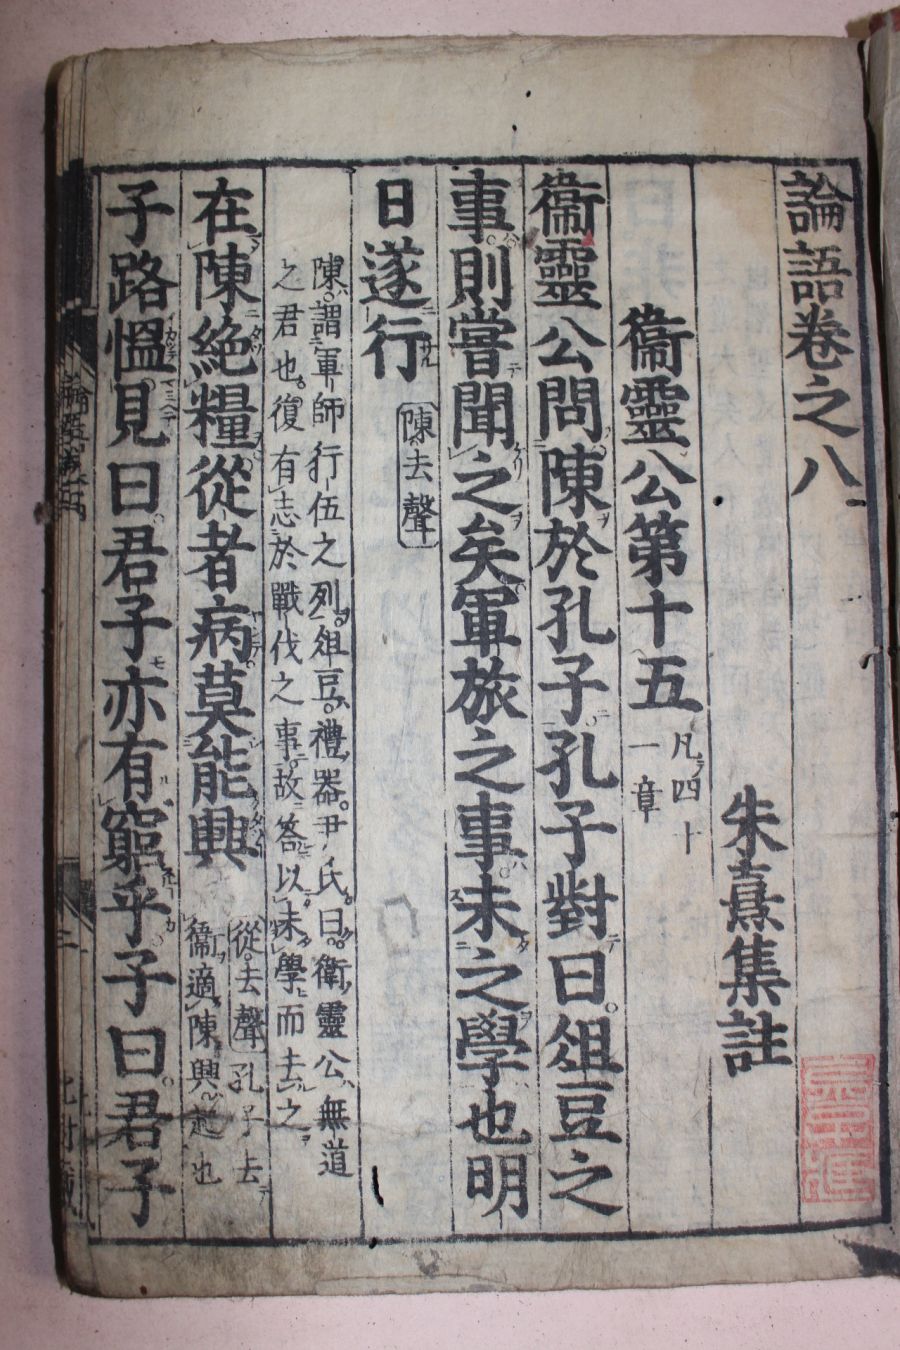 論語卷之八
朱熹集註
衞靈公第十五 凡四十
一章
衞靈公問陳於孔子孔子對曰俎豆之
事則嘗聞之矣軍旅之事未之學也明
日遂行 陳去聲
陳謂軍師行伍之列俎豆禮器尹氏曰衛靈公無道
之君也復有志於戰伐之事故答以未學而去之
在陳絶糧從者病莫能興 從去聲孔子去
衞適陳興起也
子路慍見曰君子亦有窮乎子曰君子